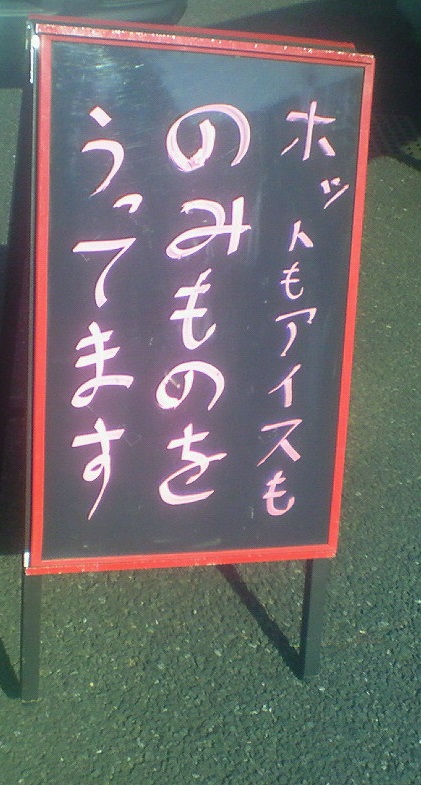 ホットもアイスも
のみものを
うってます